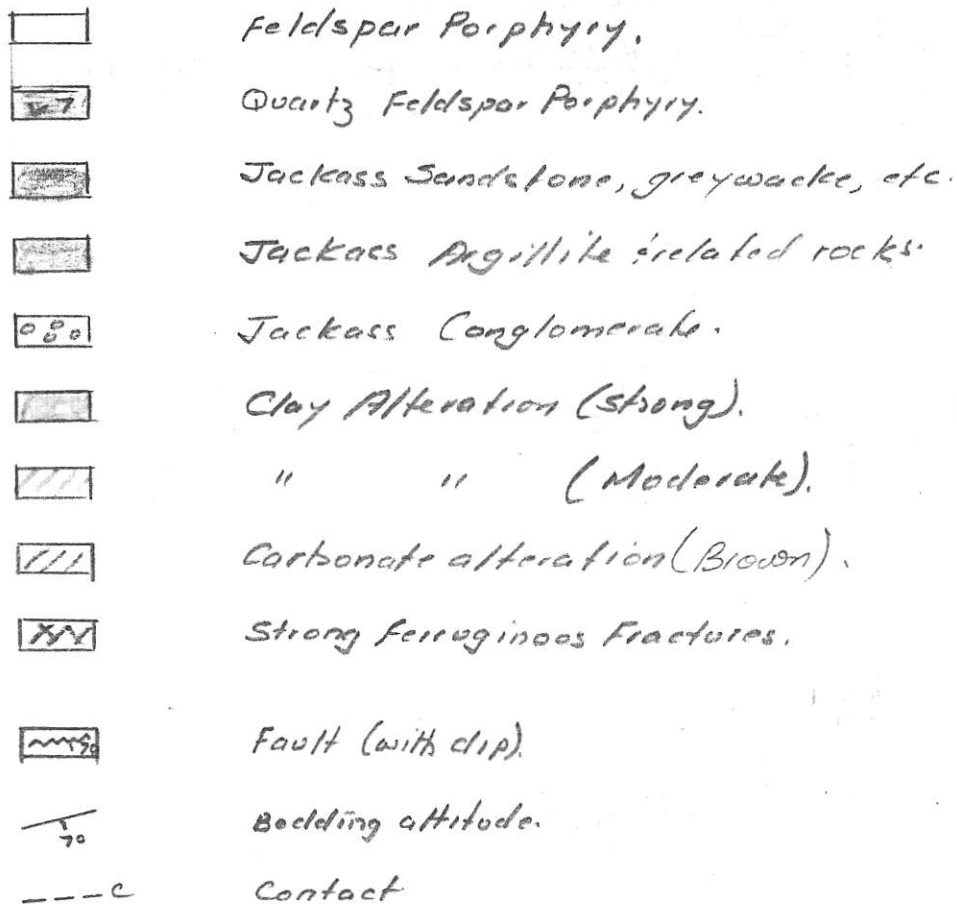 Feldspar Porphyry.
Quartz Feldspar Porphyry.
Jackass Sandstone, greywacke, etc.
Jackass Argillite & related rocks.
Jackass Conglomerate.
Clay Alteration (strong).
" " (Moderate).
Carbonate alteration (Brown).
Strong ferruginous Fractures.
Fault (with dip).
70 Bedding attitude.
C Contact